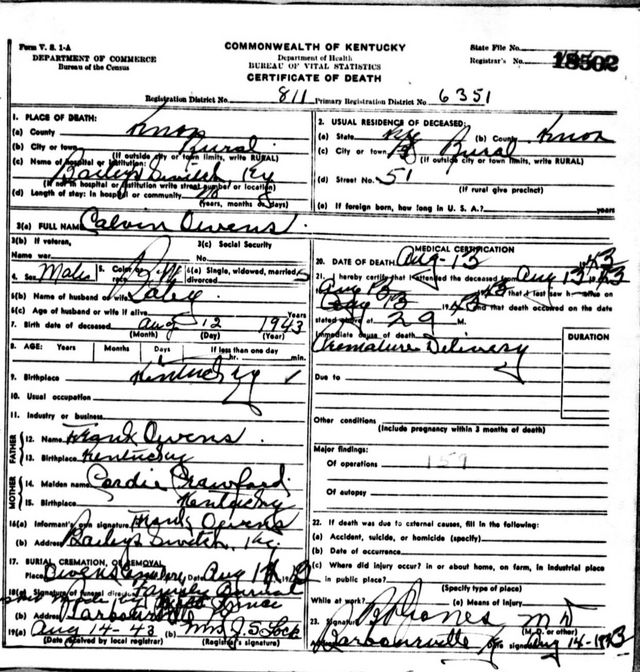 Form V. S. 1-A
DEPARTMENT OF COMMERCE
Bureau of the Census
COMMONWEALTH OF KENTUCKY
Department of Health
BUREAU OF VITAL STATISTICS
CERTIFICATE OF DEATH
State File No.
Registrar's No. 18502
Registration District No. 811 Primary Registration District No. 6351
1. PLACE OF DEATH:
(a) County Knox
(b) City or town Rural
(If outside city or town limits, write RURAL)
(c) Name of hospital or institution Baileys Switch, Ky
(If not in hospital or institution write street number or location)
(d) Length of stay: In hospital or community
(years, months or days)
2. USUAL RESIDENCE OF DECEASED:
(a) State Ky (b) County Knox
(c) City or town Rural
(If outside city or town limits, write RURAL)
(d) Street No. 51
(If rural give precinct)
(e) If foreign born, how long in U. S. A.? years
3(a) FULL NAME Calvin Owens
3(b) If veteran,
Name war
3(c) Social Security
No.
4. Sex Male 5. Color or race 6(a) Single, widowed, married, divorced S
6(b) Name of husband or wife Baby
6(c) Age of husband or wife if alive Years
7. Birth date of deceased Aug 12 1943
(Month) (Day) (Year)
8. AGE: Years Months Days If less than one day
hr. min.
9. Birthplace Kentucky
10. Usual occupation
11. Industry or business
FATHER
12. Name Frank Owens
13. Birthplace Kentucky
MOTHER
14. Maiden name Cordie Crawford
15. Birthplace Kentucky
16(a) Informant's own signature Frank Owens
(b) Address Baileys Switch, Ky.
17. BURIAL, CREMATION, OR REMOVAL
Place Owens Cemetery Date Aug 1943
18(a) Signature of funeral director Family Burial
(b) Address Barbourville
19(a) Aug 14-43 (b) Mrs J. S. Lock
(Date received by local registrar) (Registrar's signature)
MEDICAL CERTIFICATION
20. DATE OF DEATH Aug-13 1943
21. I hereby certify that I attended the deceased from Aug 13 1943
Aug 13 1943 that I last saw h alive on
Aug 13 1943 and that death occurred on the date
stated above at 29 M.
Immediate cause of death
Premature Delivery
DURATION
Due to
Other conditions
(Include pregnancy within 3 months of death)
Major findings:
Of operations 159
Of autopsy
22. If death was due to external causes, fill in the following:
(a) Accident, suicide, or homicide (specify)
(b) Date of occurrence
(c) Where did injury occur? in or about home, on farm, in industrial place
in public place?
(Specify type of place)
While at work? (e) Means of injury
23. Signature Jones M D
(M. D. or other)
Barbourville Date signed Aug 14-1943